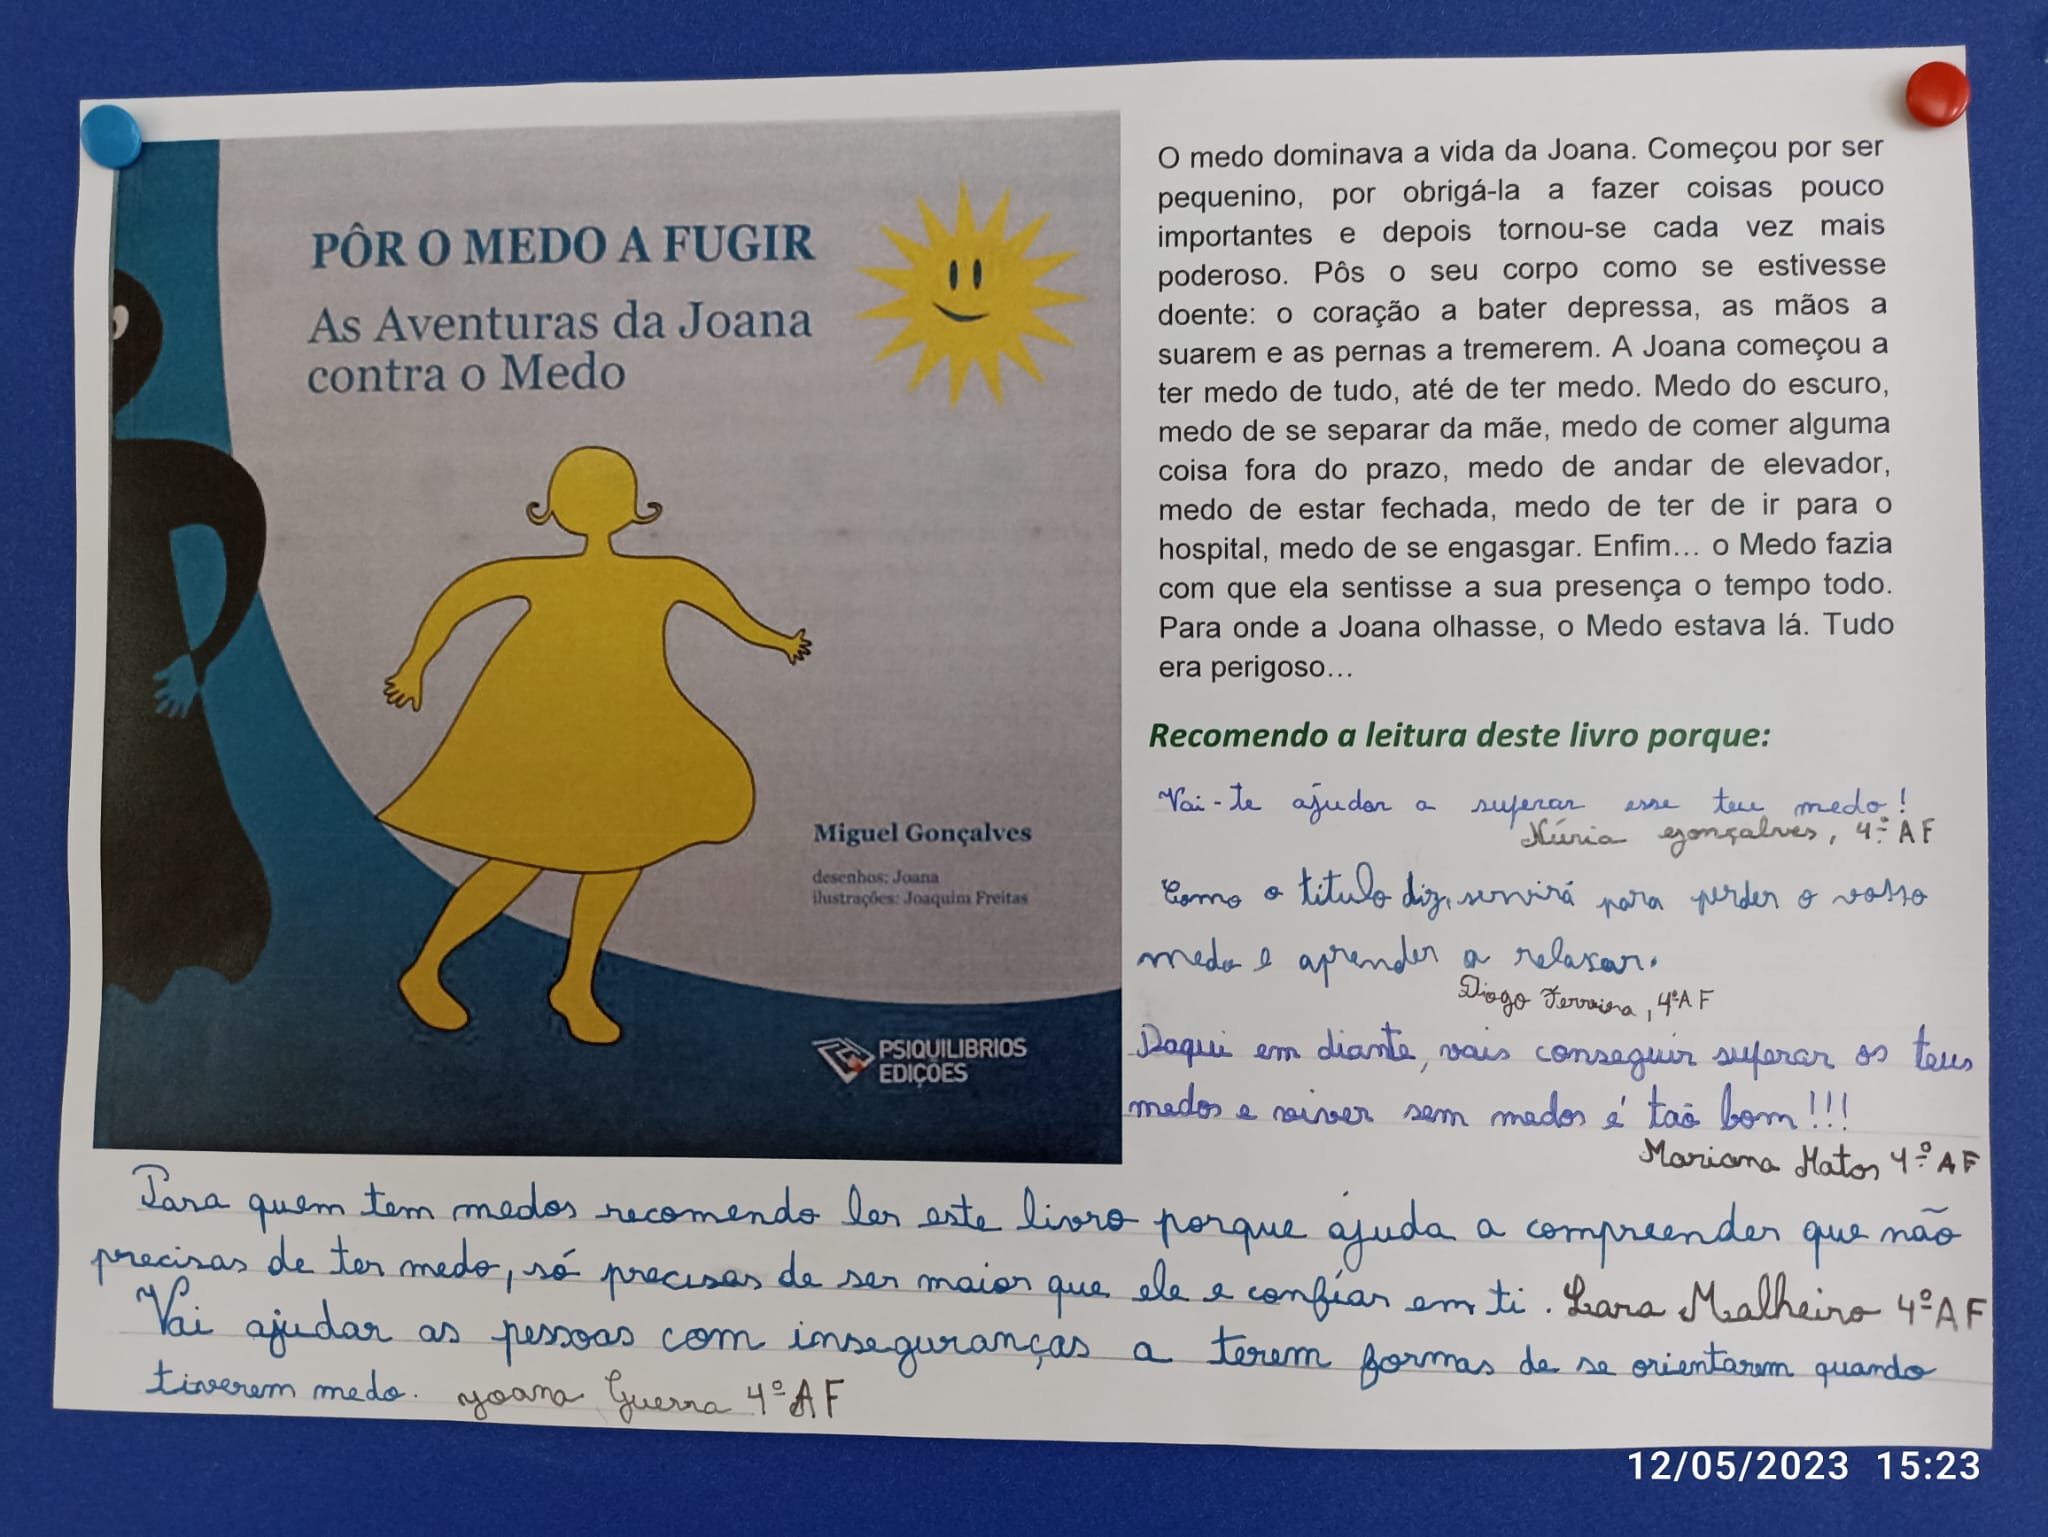 PÔR O MEDO A FUGIR
As Aventuras da Joana
contra o Medo
Miguel Gonçalves
desenhos: Joana
ilustrações: Joaquim Freitas
PSIQUILIBRIOS
EDIÇÕES
O medo dominava a vida da Joana. Começou por ser
pequenino, por obrigá-la a fazer coisas pouco
importantes e depois tornou-se cada vez mais
poderoso. Pôs o seu corpo como se estivesse
doente: o coração a bater depressa, as mãos a
suarem e as pernas a tremerem. A Joana começou a
ter medo de tudo, até de ter medo. Medo do escuro,
medo de se separar da mãe, medo de comer alguma
coisa fora do prazo, medo de andar de elevador,
medo de estar fechada, medo de ter de ir para o
hospital, medo de se engasgar. Enfim... o Medo fazia
com que ela sentisse a sua presença o tempo todo.
Para onde a Joana olhasse, o Medo estava lá. Tudo
era perigoso...
Recomendo a leitura deste livro porque:
Vai-te ajudar a superar esse teu medo!
Núria Gonçalves, 4º AF
Como o título diz, servirá para perder o vosso
medo e aprender a relaxar.
Diogo Ferreira, 4ºAF
Daqui em diante, vais conseguir superar os teus
medos e viver sem medos é taõ bom!!!
Mariana Matos 4º AF
Para quem tem medos recomendo ler este livro porque ajuda a compreender que não
precisas de ter medo, só precisas de ser maior que ele e confiar em ti. Lara Malheiro 4ºAF
Vai ajudar as pessoas com inseguranças a terem formas de se orientarem quando
tiverem medo. Joana Guerra 4ºAF
12/05/2023 15:23